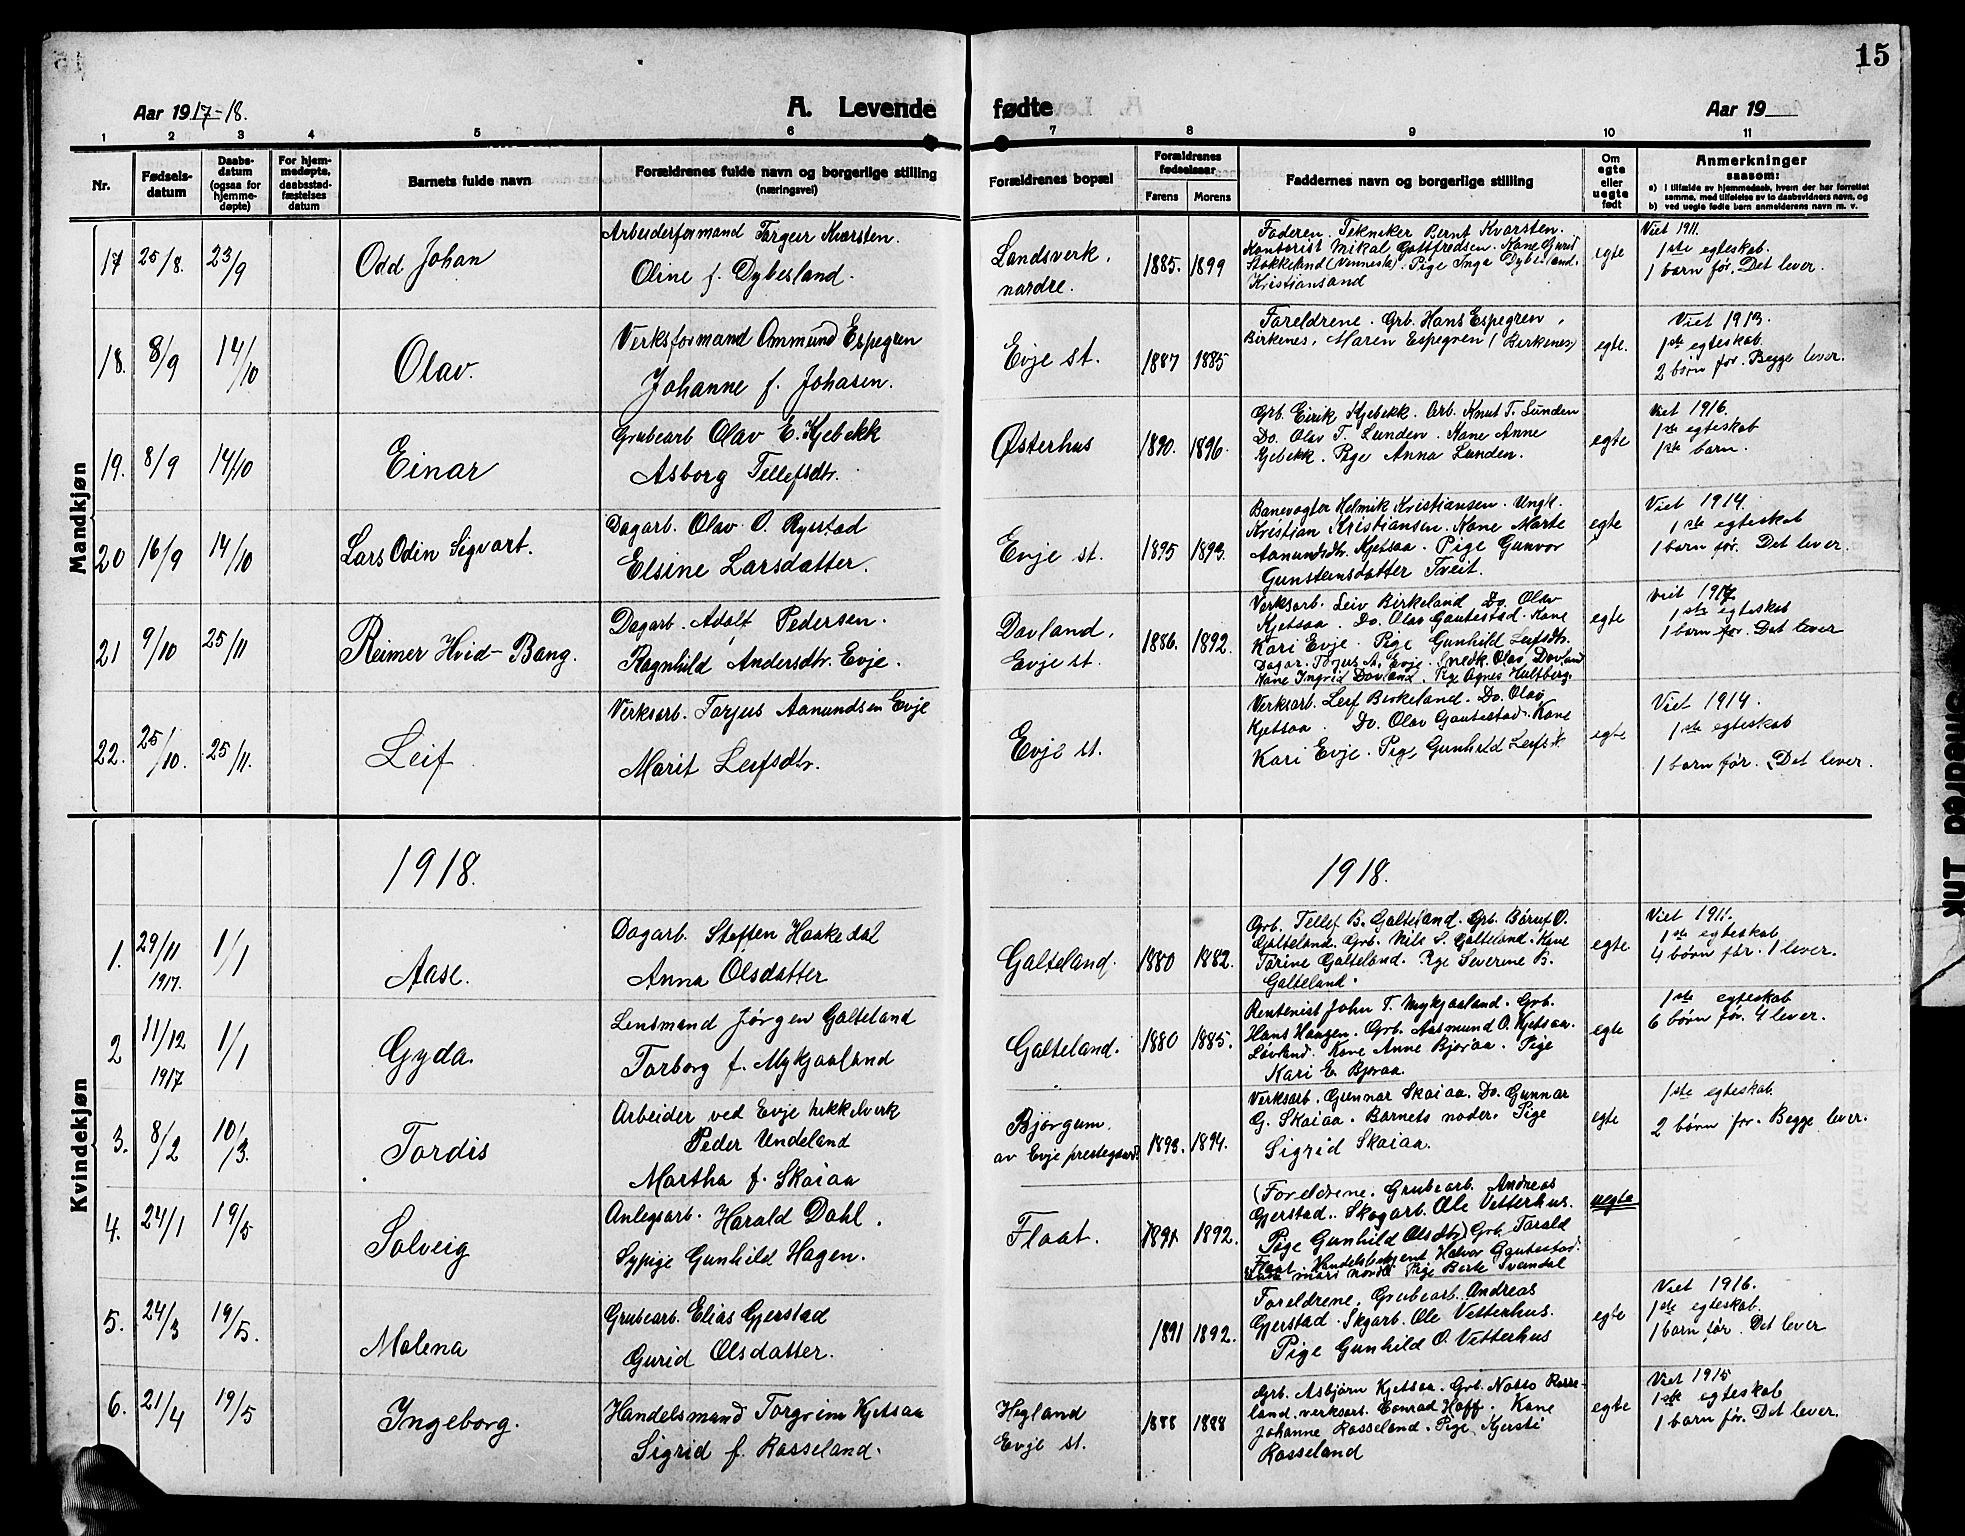 15
Aar 1917-18.
A. Levende fødte
Aar 19
1 2 3 4 5 6 7 8 9 10 11
Nr.
Fødselsdatum
Daabsdatum (ogsaa for hjemmedøpte)
For hjemmedøpte, daabsstadfæstelses datum
Barnets fulde navn
Forældrenes fulde navn og borgerlige stilling (næringsvei)
Forældrenes bopæl
Forældrenes fødselsaar
Farens Morens
Faddernes navn og borgerlige stilling
Om egte eller uegte født
Anmerkninger saasom:
a) i tilfælde av hjemmedaab, hvem der har forrettet samme, med tilføielse av to daabsvidners navn, og
b) ved uegte fødte barn anmelderens navn m. v.
Mandkjøn
17 25/8. 23/9 Odd Johan
Arbeiderformand Torgeir Kvarsten.
Oline f. Dybesland.
Landsverk, nordre.
1885. 1899
Faderen. Tekniker Bernt Kvarsten.
Kontorist Mikal Gottfredsen. Kone Gurid
Stokkeland (Vennesla). Pige Inga Dybesland.
Kristiansand
egte
Viet 1911.
1ste egteskab.
1 barn før. Det lever.
18. 8/9 14/10 Olav.
Verksformand Ommund Espegren
Johanne f. Johasen.
Evje st.
1887 1885
Foreldrene. Grb. Hans Espegren,
Birkenes, Maren Espegren (Birkenes)
egte.
Viet 1913.
1ste egteskab.
2 børn før. Begge lever.
19. 8/9 14/10 Einar
Grubearb Olav E. Kjebekk
Asborg Tellefsdtr.
Østerhus
1890. 1896.
Grb. Eirik Kjebekk. Arb. Knut T. Lunden
Do. Olav T. Lunden. Kone Anne
Kjebekk. Pige Anna Lunden.
egte
Viet 1916.
1ste egteskab
1ste barn.
20 16/9 14/10 Lars Odin Sigvart.
Dagarb. Olav O. Rysstad
Elsine Larsdatter.
Evje st.
1895 1893.
Banevogter Helmik Kristiansen. Ungk.
Kristian Kristiansen. Kone Marte
Aanundsdtr. Kjetsaa. Pige Gunvor
Gunsteinsdatter Tveit.
egte
Viet 1914.
1ste egteskab
1 barn før. Det lever.
21 9/10 25/11 Reimer Hvid-Bang.
Dagarb. Adolf Pedersen.
Ragnhild Andersdtr. Evje.
Dovland, Evje st.
1886. 1892.
Verksarb. Leiv Birkeland Do. Olav
Kjetsaa. Do. Olav Gautestad. Kone
Kari Evje. Pige Gunhild Leifsdtr.
Dagar. Torjus A. Evje. Snedk. Olav Dovland
Kone Ingrid Dovland. Pige Agnes Hultberg.
egte
Viet 1917
1ste egteskab
1 barn før. Det lever
22. 25/10. 25/11. Leif
Verksarb. Torjus Aanundsen Evje
Marit Leifsdtr.
Evje st.
Verksarb. Leif Birkeland. Do. Olav
Kjetsaa. Do. Olav Gautestad. Kone
Kari Evje. Pige Gunhild Leifsdtr.
egte
Viet 1914.
1ste egteskab
1 barn før. Det lever.
Kvindekjøn
1918. 1918.
1. 29/11 1917. 1/1 Aase.
Dagarb. Steffen Haakedal
Anna Olsdatter
Galteland.
1880 1882.
Grb. Tellef B. Galteland. Grb. Børuf O.
Galteland. Grb. Nils S. Galteland. Kone
Torine Galteland. Pige Severine B.
Galteland.
egte
Viet 1911.
1ste egteskab
4 børn før. 1 lever.
2 11/12 1917 1/1 Gyda.
Lensmand Jørgen Galteland
Torborg f. Mykjaaland
Galteland.
1880 1885.
Rentenist John T. Mykjaaland. Grb.
Hans Haagen. Grb. Aasmund O. Kjetsaa.
Kone Anne Bjoraa. Pige
Kari E. Bjoraa.
egte
1ste egteskab
6 børn før. 4 lever.
3. 8/2 10/3. Tordis
Arbeider ved Evje nikkelverk
Peder Undeland
Martha f. Skaiaa
Bjørgum. av Evje prestegaard
1893. 1894.
Verksarb. Gunnar Skaiaa. Do. Gunnar
G. Skaiaa. Barnets moder. Pige
Sigrid Skaiaa.
egte
1ste egteskab.
2 børn før. Begge lever.
4. 24/1 19/5 Solveig
Anlegsarb. Harald Dahl.
Sypige Gunhild Hagen.
Flaat.
1891 1892.
(Foreldrene. Grubearb. Andreas
Gjerstad. Skogarb. Ole Vetterhus.
Pige Gunhild Olsdtr) Grb. Torald
Flaat. Handelsbetjent Halvor Gautestad.
Mari Pige Berte Svandal
uegte
5. 24/3 19/5. Malena
Grubearb. Elias Gjerstad
Gurid Olsdatter.
1891 1892.
Foreldrene. Grubearb. Andreas
Gjerstad. Skgarb. Ole Vetterhus.
Pige Gunhild O. Vetterhus
egte
Viet 1916.
1ste egteskab.
1 barn før. Det lever
6. 21/4 19/5 Ingeborg.
Handelsmand Torgrim Kjetsaa
Sigrid f. Rosseland.
Hegland Evje st.
1888 1888
Grb. Asbjørn Kjetsaa. Grb. Notto Rosse-
land. verksarb. Conrad Hoff. Kone
Johanne Rosseland. Pige Kjersti
Rosseland
egte
Viet 1915
1ste egteskab
1 barn før. Det lever.